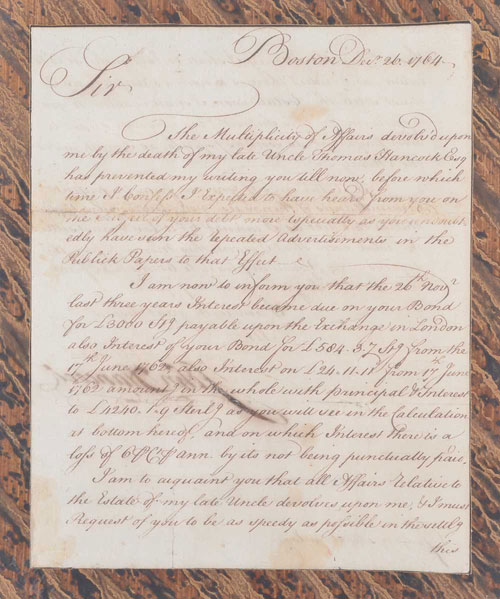 Boston Decr. 26. 1764.
Sir
The Multiplicity of Affairs devolv'd upon
me by the death of my late Uncle Thomas Hancock Esq
has prevented my writing you till now, before which
time I Confess I Expected to have heard from you on
the of your debt more especially as you undoubt-
edly have seen the repeated Advertisements in the
Publick Papers to that Effect
I am now to inform you that the 26th Novr.
last three years Interest became due on your Bond
for £3000 Stg payable upon the Exchange in London
also Interest of your Bond for £584.3.7 Stg from the
17th June 1762, also Interest on £24.11.11 from 17th June
1762 amountg in the whole with principal & Interest
to £4240.1.4 Sterlg as you will see in the Calculation
at bottom hereof, and on which Interest there is a
loss of 6 P Ct P ann. by its not being punctually paid.
I am to acquaint you that all Affairs Relative to
the Estate of my late Uncle devolves upon me, & I must
Request of you to be as speedy as possible in the settlg
this